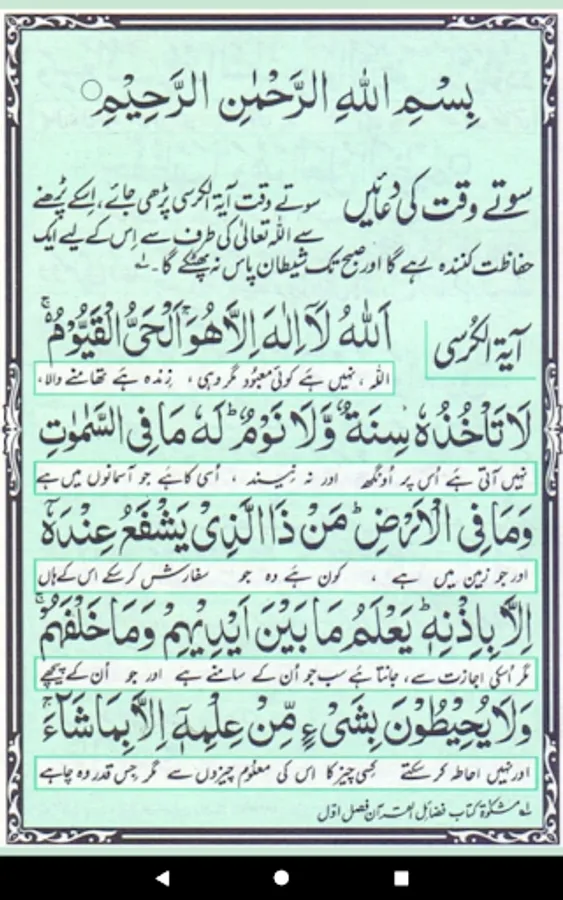 بِسْمِ اللّٰهِ الرَّحْمٰنِ الرَّحِيْمِ○
سوتے وقت کی دعائیں سوتے وقت آیۃ الکرسی پڑھی جائے، اسکے پڑھنے
سے اللہ تعالیٰ کی طرف سے اس کے لیے ایک
حفاظت کنندہ رہے گا اور صبح تک شیطان پاس نہ پھٹکے گا۔ لے
آیۃ الکرسی اَللّٰهُ لَآ اِلٰهَ اِلَّا هُوَ ۚ اَلْحَيُّ الْقَيُّوْمُ ۚ
اللہ، نہیں ہے کوئی معبود مگر وہی، زندہ ہے تھامنے والا،
لَا تَاْخُذُهٗ سِنَةٌ وَّلَا نَوْمٌ ؕ لَهٗ مَا فِى السَّمٰوٰتِ
نہیں آتی ہے اُس پر اُونگھ اور نہ نیند، اُسی کا ہے جو آسمانوں میں ہے
وَمَا فِى الْاَرْضِ ؕ مَنْ ذَا الَّذِىْ يَشْفَعُ عِنْدَهٗۤ
اور جو زمین میں ہے، کون ہے وہ جو سفارش کرسکے اس کے ہاں
اِلَّا بِاِذْنِهٖ ؕ يَعْلَمُ مَا بَيْنَ اَيْدِيْهِمْ وَمَا خَلْفَهُمْ ۚ
مگر اُسکی اجازت سے، جانتا ہے سب جو اُن کے سامنے ہے اور جو اُن کے پیچھے
وَلَا يُحِيْطُوْنَ بِشَىْءٍ مِّنْ عِلْمِهٖۤ اِلَّا بِمَا شَآءَ ۚ
اور نہیں احاطہ کرسکتے کسی چیز کا اس کی معلوم چیزوں سے مگر جس قدر وہ چاہے
لے مشکوٰۃ کتاب فضائل القرآن فصل اوّل